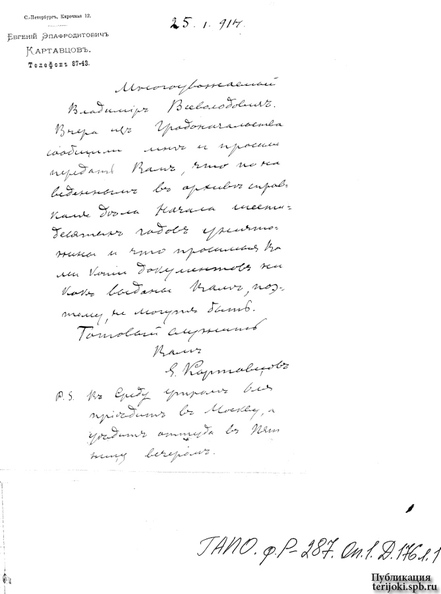 С.-Петербургъ, Кирочная 12.
Евгеній Эпафродитовичъ
Картавцовъ.
Телефонъ 87-43.
25. I. 914.
Многоуважаемый
Владиміръ Всеволодовичъ.
Вчера изъ Градоначальства
сообщили мнѣ и просили
передать Вамъ, что по на
веденнымъ въ архивѣ справ
камъ дѣла начала шести-
десятыхъ годовъ уничто-
жены и что просимыя Ва
ми копіи документовъ ни
какъ выданы Вамъ, поэ-
тому, не могутъ быть.
Готовый служить
Вамъ
Е. Картавцовъ
P.S. Въ Среду утромъ
пріѣдитъ въ Москву, а
уѣдитъ оттуда въ Пят
ницу вечеромъ.
ГАПО. ф. Р-287. Оп.1. Д.176 л.1
Публикация
terijoki.spb.ru